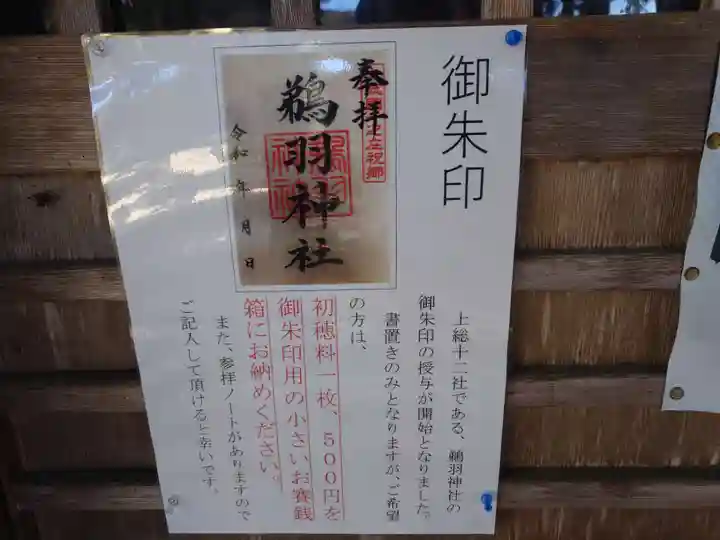 御朱印
奉拝
鵜羽神社
令和 年 月 日
上総十二社である、鵜羽神社の
御朱印の授与が開始となりました。
書置きのみとなりますが、ご希望
の方は、
初穂料一枚、500円を
御朱印用の小さいお賽銭
箱にお納めください。
また、参拝ノートがありますので
ご記入して頂けると幸いです。